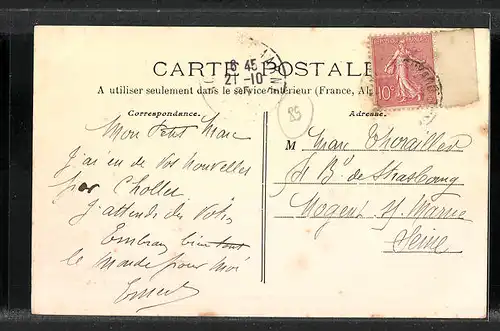 6 45
21 -10
CARTE POSTALE
10c
A utiliser seulement dans le service intérieur (France, Alg
85
Correspondance.
Adresse.
Mon Petit Marc
J'ai eu de vos nouvelles
par Chollet
J'attends des Vôtres
Embrasse bien tout
le Monde pour Moi
Ernest
M Marc
Bd de Strasbourg
Nogent s/ Marne
Seine